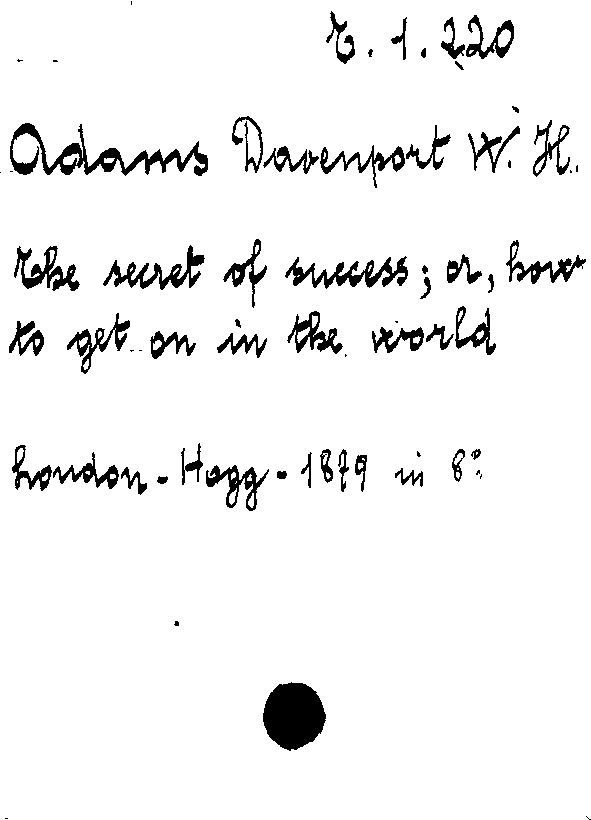 T. 1. 220
Adams Davenport W. H.
The secret of success; or, how
to get on in the world
London - Hogg - 1879 in 8°